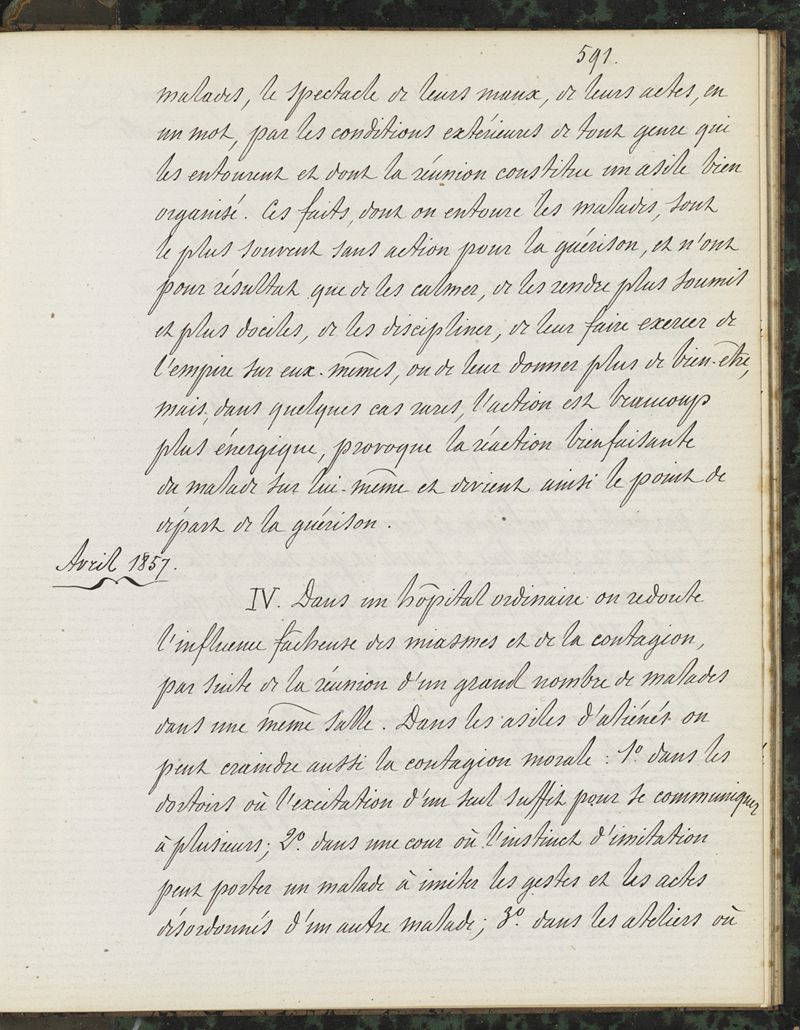 591.
malades, le spectacle de leurs maux, de leurs actes, en
un mot, par les conditions extérieures de tout genre qui
les entourent et dont la réunion constitue un asile bien
organisé. Ces faits, dont on entoure les malades, sont
le plus souvent sans action pour la guérison, et n'ont
pour résultat que de les calmer, de les rendre plus soumis
et plus dociles, de les discipliner, de leur faire exercer de
l'empire sur eux-mêmes, ou de leur donner plus de bien-être,
mais, dans quelques cas rares, l'action est beaucoup
plus énergique, provoque la réaction bienfaisante
du malade sur lui-même et devient ainsi le point de
départ de la guérison.
Avril 1857.
IV. Dans un hôpital ordinaire on redoute
l'influence fâcheuse des miasmes et de la contagion,
par suite de la réunion d'un grand nombre de malades
dans une même salle. Dans les asiles d'aliénés on
peut craindre aussi la contagion morale : 1º. dans les
dortoirs où l'excitation d'un seul suffit pour se communiquer
à plusieurs; 2º. dans une cour où l'instinct d'imitation
peut porter un malade à imiter les gestes et les actes
désordonnés d'un autre malade; 3º. dans les ateliers où